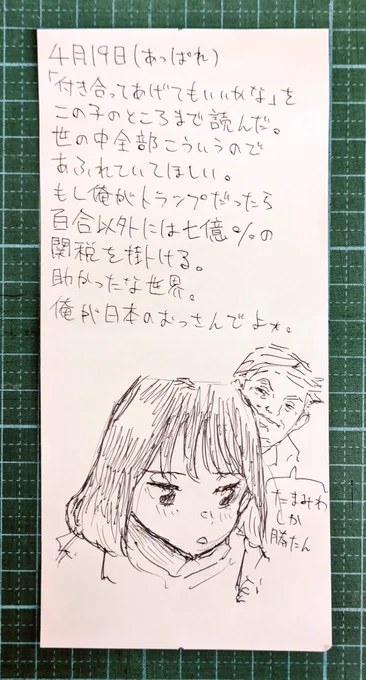 4月19日(あっぱれ)
「付き合ってあげてもいいかな」を
この子のところまで読んだ。
世の中全部こういうので
あふれていてほしい。
もし俺がトランプだったら
百合以外には七億%の
関税を掛ける。
助かったな世界。
俺が日本のおっさんでよォ。
たまみわ
しか
勝たん